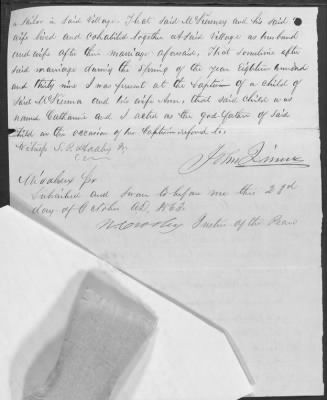 a Tailor in said Village. That said McKinney and his said
wife lived and Cohabited together at said Village as husband
and wife after their marriage aforesaid, That sometime after
said marriage during the Spring of the year Eighteen hundred
and thirty nine I was present at the baptism of a child of
said McKinna and his wife Ann, that said child was
named Catharine and I acted as the god-father of said
Child on the occasion of her baptism referred to.
Witness
John
Subscribed and Sworn to before me this 23d
day of October AD, 1862.
Justice of the Peace